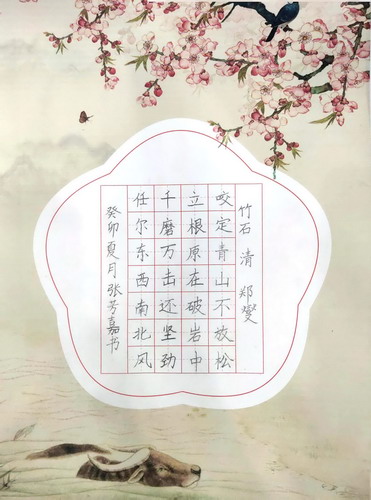 竹石 清 郑燮
咬定青山不放松
立根原在破岩中
千磨万击还坚劲
任尔东西南北风
癸卯夏月张芳嘉书